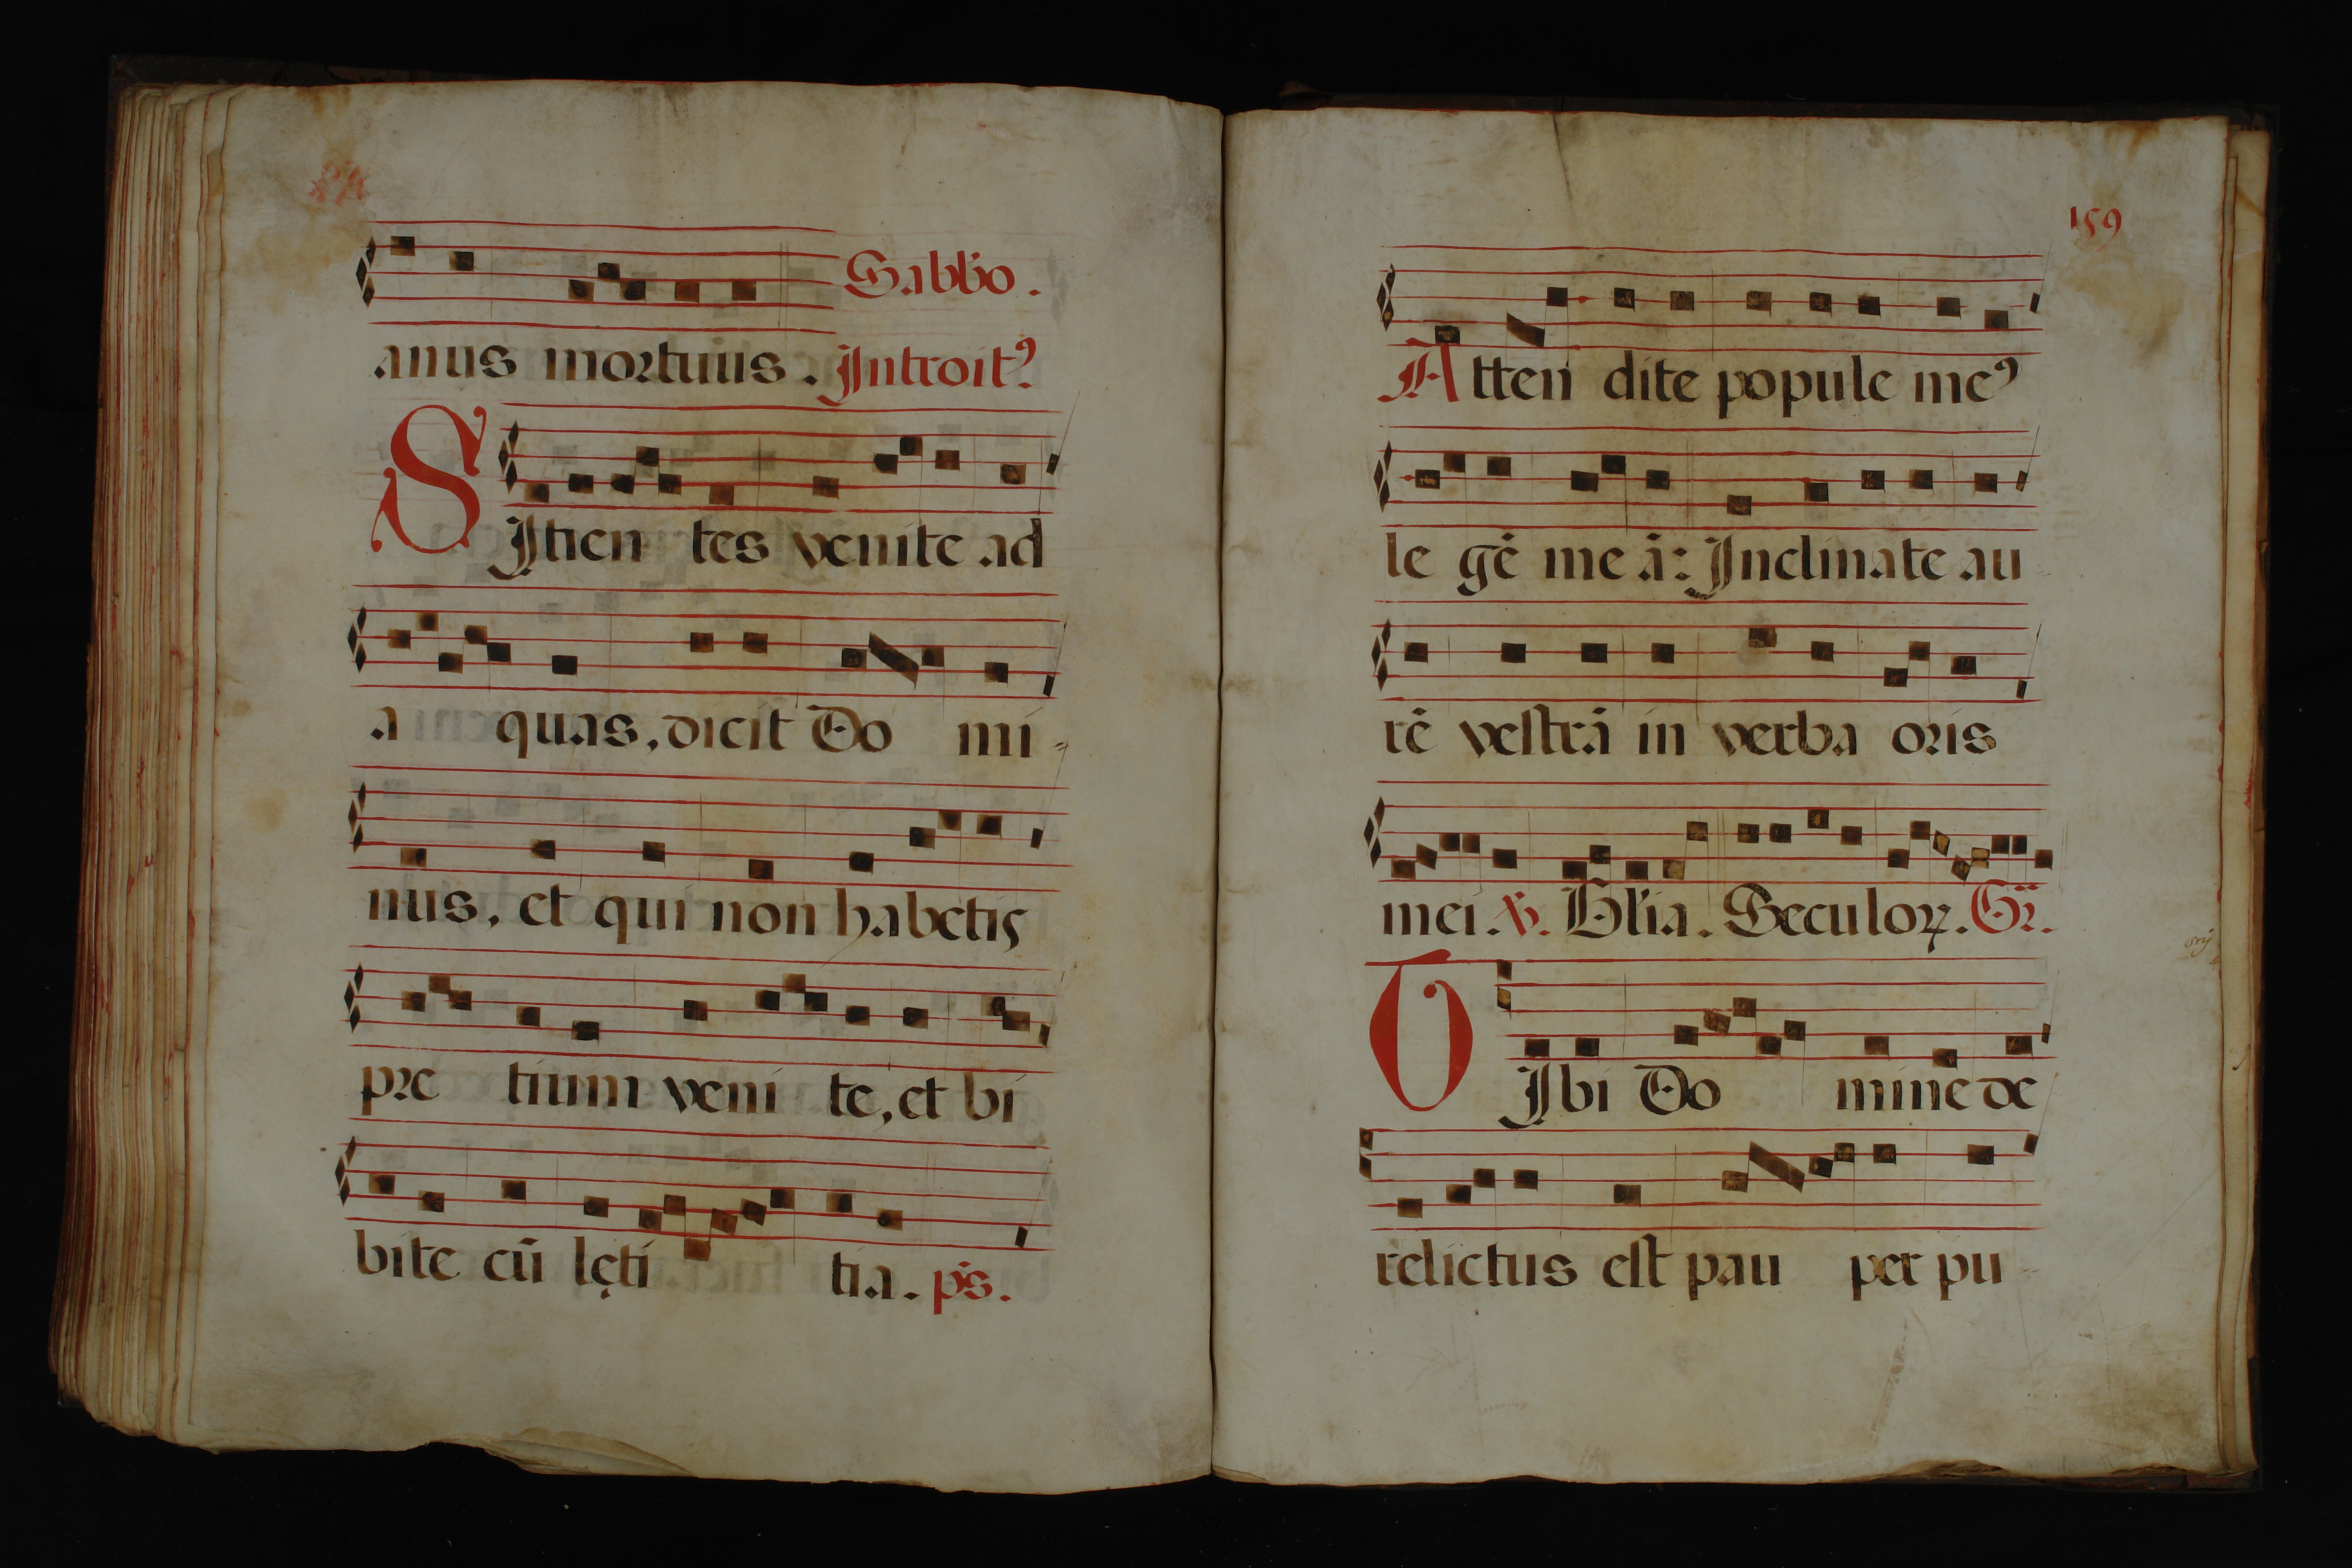 Sabb̃o.
anus mortuus. Introitꝰ.
SItien tes venite ad
a quas, dicit Do mi=
nus, et qui non habetis
pre tium veni te, et bi
bite cū lęti tia. ps̄.
159
Atten dite popule meꝰ
le gē me ā: Inclinate au=
rē vestrā in verba oris
mei. ℣. Gl̃ia. Seculoꝝ. Gr̄.
TIbi Do mine de
relictus est pau per pu=